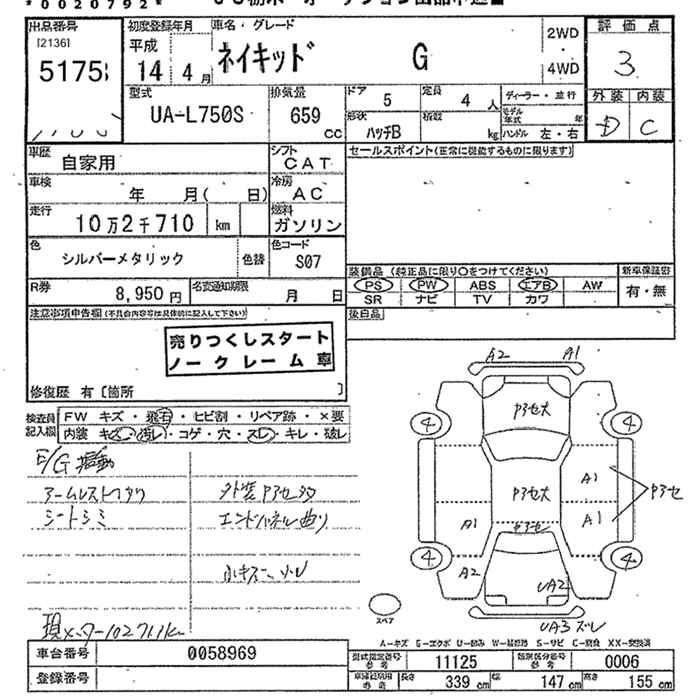 *0020792*
出品番号
[2136]
5175
初度登録年月
平成
14年4月
車名・グレード
ネイキッド G
2WD
4WD
評価点
3
外装 内装
D C
型式
UA-L750S
排気量
659
cc
ドア 5
定員 4 人
ディーラー・並行
形状
ハッチB
積載
kg
モデル年式 年
ハンドル 左・右
車歴
自家用
シフト
CAT
セールスポイント(正常に機能するものに限ります)
車検
年 月( 日)
冷房
AC
走行
10万2千710 km
燃料
ガソリン
色
シルバーメタリック
色替
色コード
S07
装備品 (純正品に限り○をつけてください)
新車保証書
PS PW ABS エアB AW
有・無
SR ナビ TV カワ
R券
8,950円
名変通知期限
月 日
後日品
注意事項申告欄(不具合内容等は具体的に記入して下さい)
売りつくしスタート
ノークレーム車
修復歴 有〔箇所 〕
検査員
記入欄
FW キズ・飛石・ヒビ割・リペア跡・×要
内装 キズ・汚レ・コゲ・穴・スレ・キレ・破レ
A2 A1
4 4
A1 A1
A1
4 4
A2
UA2
UA3 ズレ
E/G
シートシミ
外装
エンドパネル曲り
スペア
現メーター102711km
A-キズ G-エクボ U-凹み W-補修跡 S-サビ C-腐食 XX-交換済
車台番号
0058969
型式指定番号
参考
11125
類別区分番号
参考
0006
登録番号
長さ 339 cm
幅 147 cm
高さ 155 cm